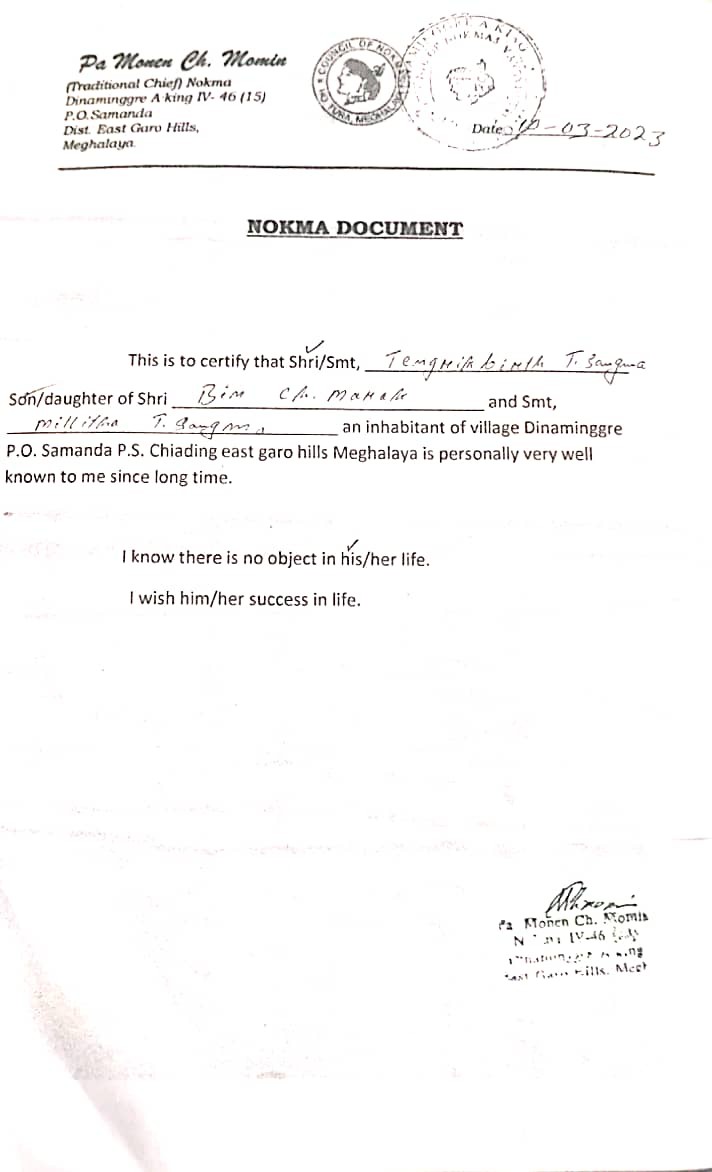 Pa Monen Ch. Momin
(Traditional Chief) Nokma
Dinaminggre A·king IV- 46 (15)
P.O.Samanda
Dist. East Garo Hills,
Meghalaya.
COUNCIL OF NOKMAS
TURA, MEGHALAYA
Date 10-03-2023
NOKMA DOCUMENT
This is to certify that Shri/Smt, T. Sangma
Son/daughter of Shri Bim Ch. Marak and Smt,
Millitha T. Sangma an inhabitant of village Dinaminggre
P.O. Samanda P.S. Chiading east garo hills Meghalaya is personally very well
known to me since long time.
I know there is no object in his/her life.
I wish him/her success in life.
Pa Monen Ch. Momin
IV-46
East Garo Hills,